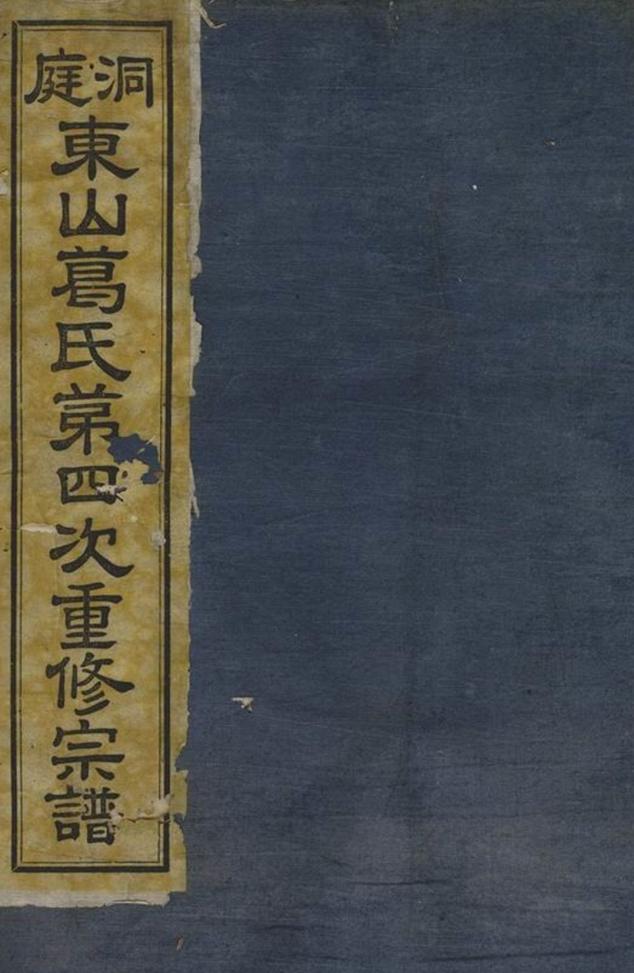 洞庭
東山葛氏第四次重修宗譜